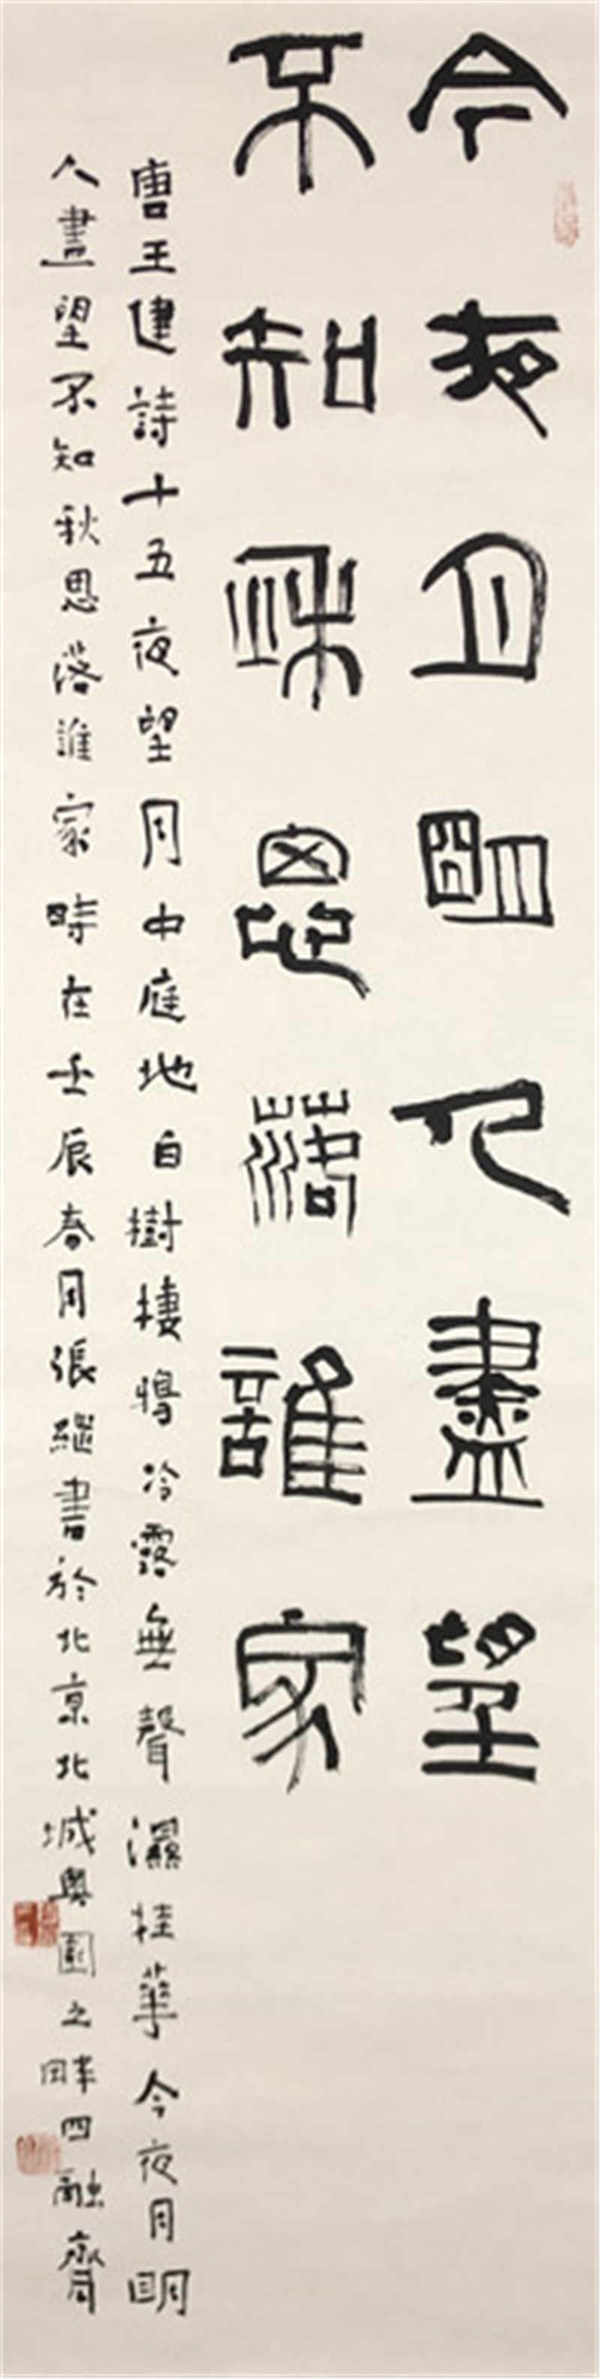 今夜月明人盡望
不知秋思落誰家
唐王建詩十五夜望月中庭地白樹棲鴉冷露無聲濕桂華今夜月明
人盡望不知秋思落誰家時在壬辰春月張繼書於北京北城奧園之畔四融齋